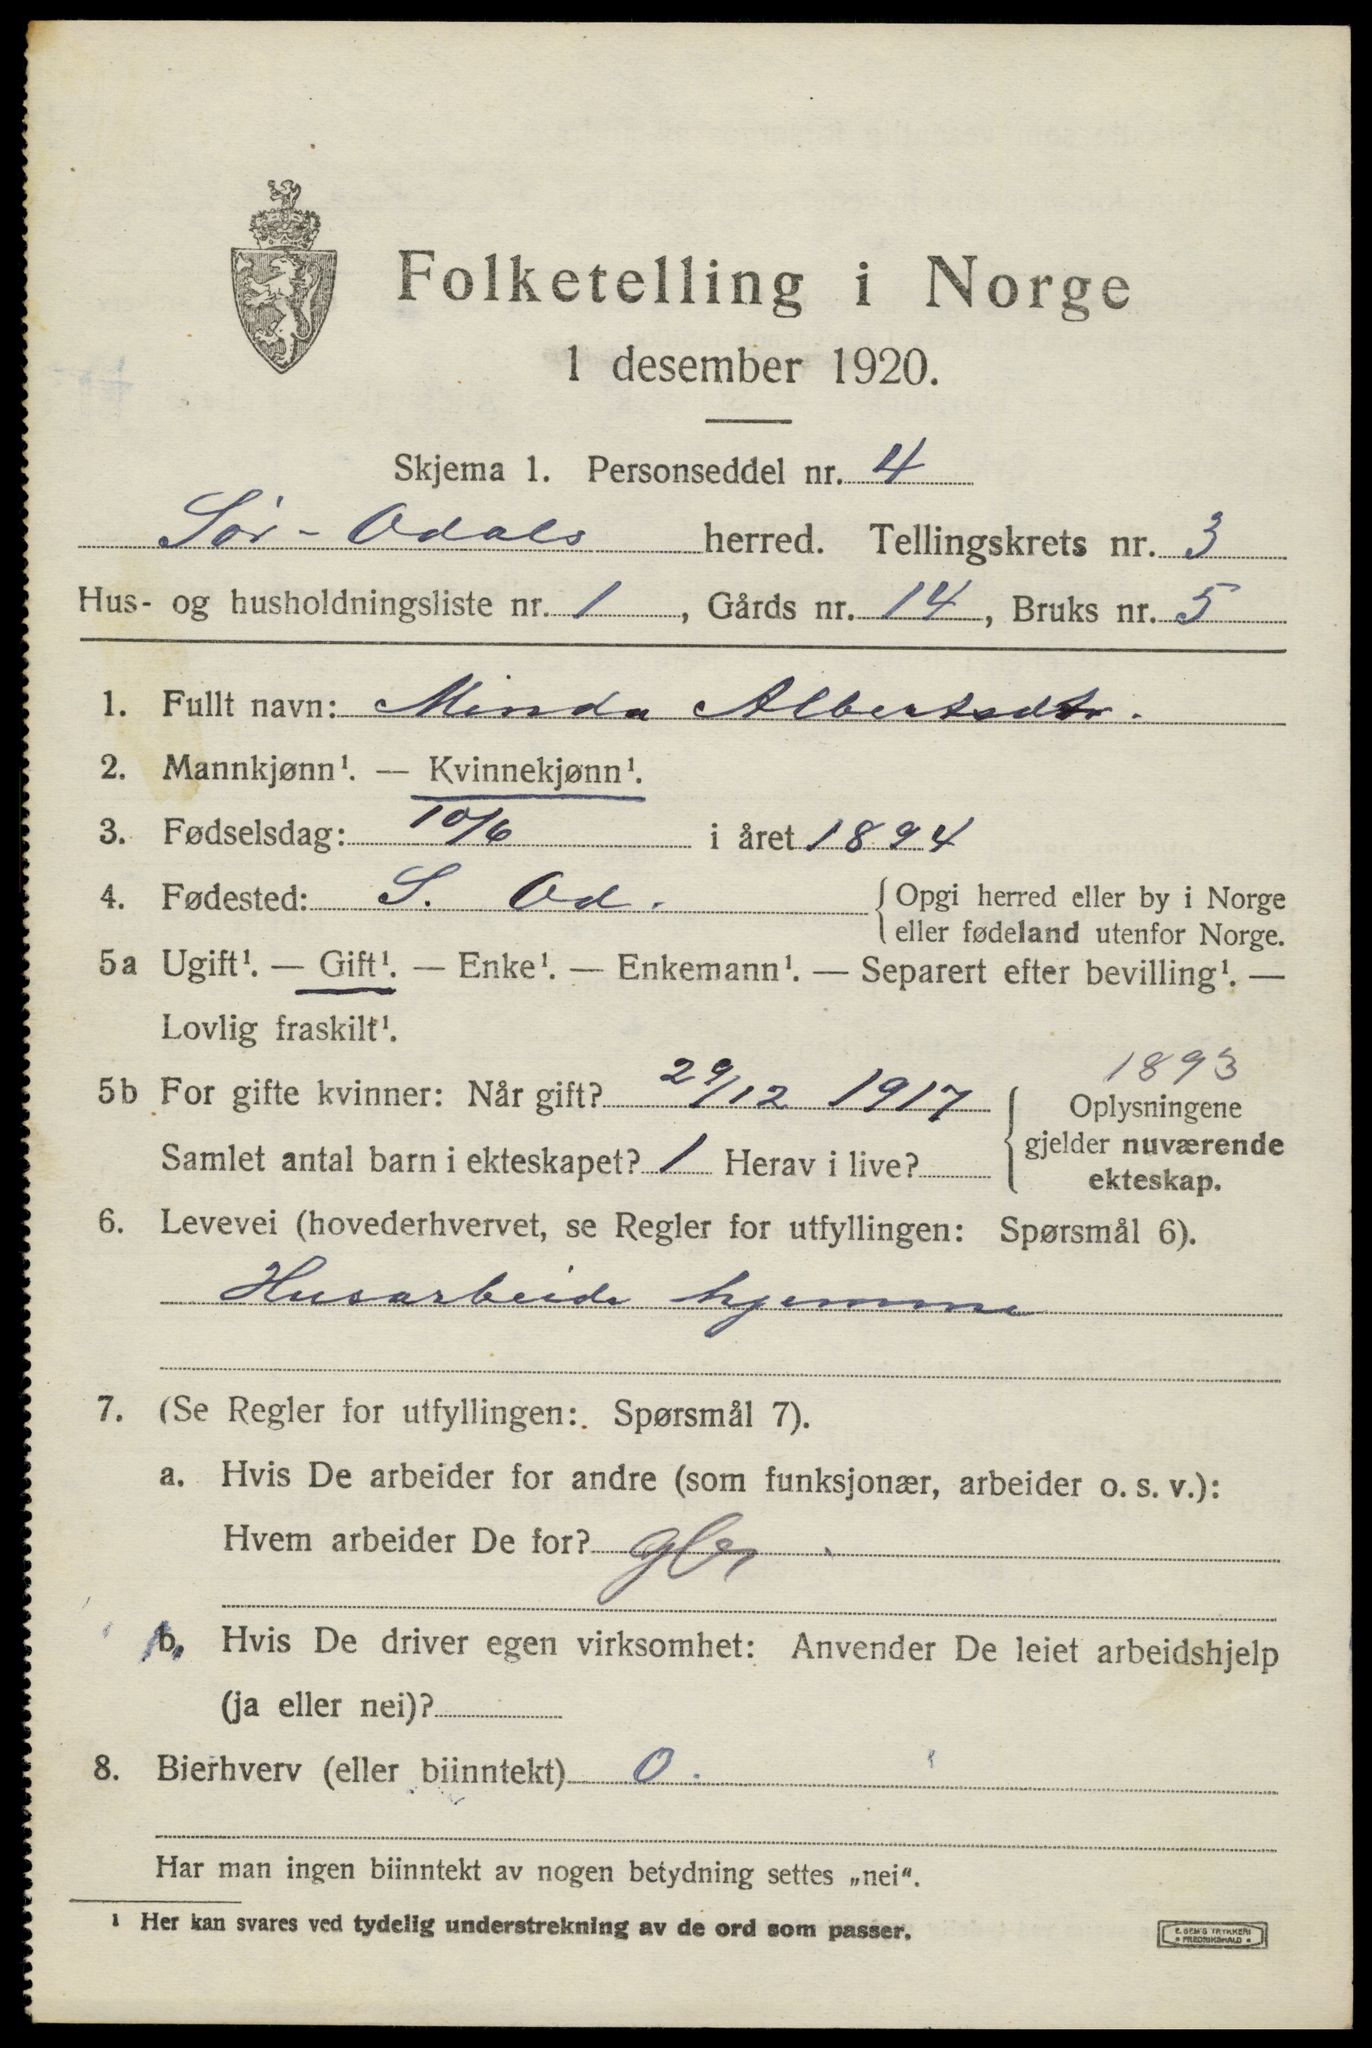 Folketelling i Norge
1 desember 1920.
Skjema 1. Personseddel nr. 4
Sør-Odals herred. Tellingskrets nr. 3
Hus- og husholdningsliste nr. 1, Gårds nr. 14, Bruks nr. 5
1. Fullt navn: Minda Albertsdtr.
2. Mannkjønn¹. — Kvinnekjønn¹.
3. Fødselsdag: 10/6 i året 1894
4. Fødested: S. Od. { Opgi herred eller by i Norge
eller fødeland utenfor Norge.
5a Ugift¹. — Gift¹. — Enke¹. — Enkemann¹. — Separert efter bevilling¹. —
Lovlig fraskilt¹.
1893
5b For gifte kvinner: Når gift? 29/12 1917 { Oplysningene
gjelder nuværende
Samlet antal barn i ekteskapet? 1 Herav i live?
ekteskap.
6. Levevei (hovederhvervet, se Regler for utfyllingen: Spørsmål 6).
Husarbeide hjemme
7. (Se Regler for utfyllingen: Spørsmål 7).
a. Hvis De arbeider for andre (som funksjonær, arbeider o. s. v.):
Hvem arbeider De for?
b. Hvis De driver egen virksomhet: Anvender De leiet arbeidshjelp
(ja eller nei)?
8. Bierhverv (eller biinntekt) 0.
Har man ingen biinntekt av nogen betydning settes „nei“.
¹ Her kan svares ved tydelig understrekning av de ord som passer.
E. SEM'S TRYKKERI
FREDRIKSHALD